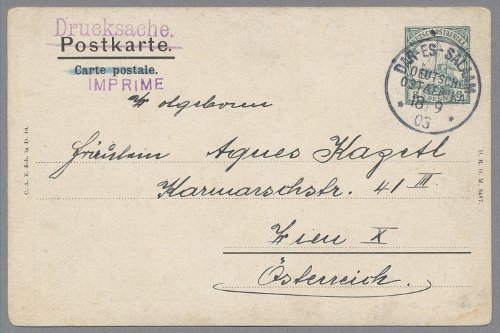 Drucksache.
Postkarte.
Carte postale.
IMPRIMÉ
DAR-ES-SALAAM
DEUTSCH-
OSTAFRIKA
18 9
03
Wolgeboren
Fräulein Agnes Kagetl
Karmarschstr. 41 III
Wien X
Österreich.